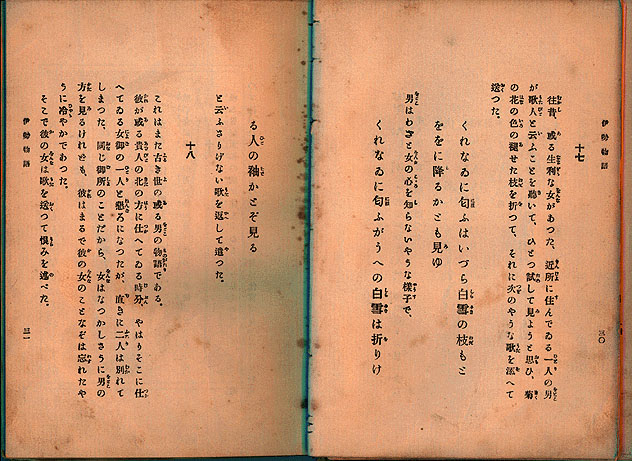 伊勢物語
十七
往昔、或る生利な女があつた。近所に住んでゐる一人の男
が歌人と云ふことを聽いて、ひとつ試して見ようと思ひ、菊
の花の色の褪せた枝を折つて、それに次のやうな歌を添へて
送つた。
くれなゐに匂ふはいづら白雪の枝もと
をゝに降るかとも見ゆ
男はわざと女の心を知らないやうな樣子で、
くれなゐに匂ふがうへの白雪は折りけ
三〇
る人の袖かとぞ見る
と云ふさりげない歌を返して遣つた。
十八
これはまた古き世の或る男の物語である。
彼が或る貴人の北の方に仕へてゐる時分、やはりそこに仕
へてゐる女御の一人と懇ろになつたが、直きに二人は別れて
しまつた。同じ御所のことだから、女はなつかしさうに男の
方を見るけれども、彼はまるで彼の女のことなぞは忘れたや
うに冷やかであつた。
そこで彼の女は歌を送つて恨みを述べた。
伊勢物語
三一